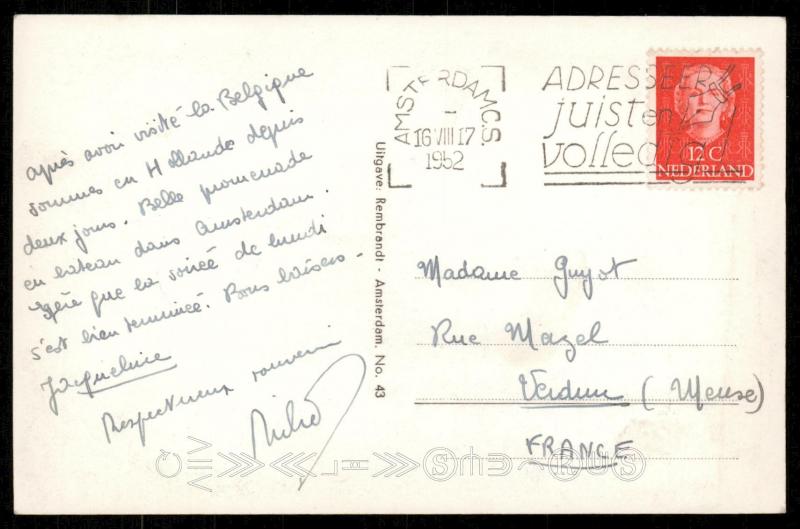 après avoir visité la Belgique
sommes en Hollande depuis
deux jours. Belle promenade
en bateau dans Amsterdam.
espère que la soirée de lundi
s'est bien terminée. Bons baisers.
Jacqueline
Respectueux souvenir
AMSTERDAM C.S.
16 VIII 17
1952
ADRESSEER
juist en
volledig
12 C
NEDERLAND
Uitgave: Rembrandt - Amsterdam. No. 43
Madame Guyot
Rue Mazel
Verdun (Meuse)
FRANCE